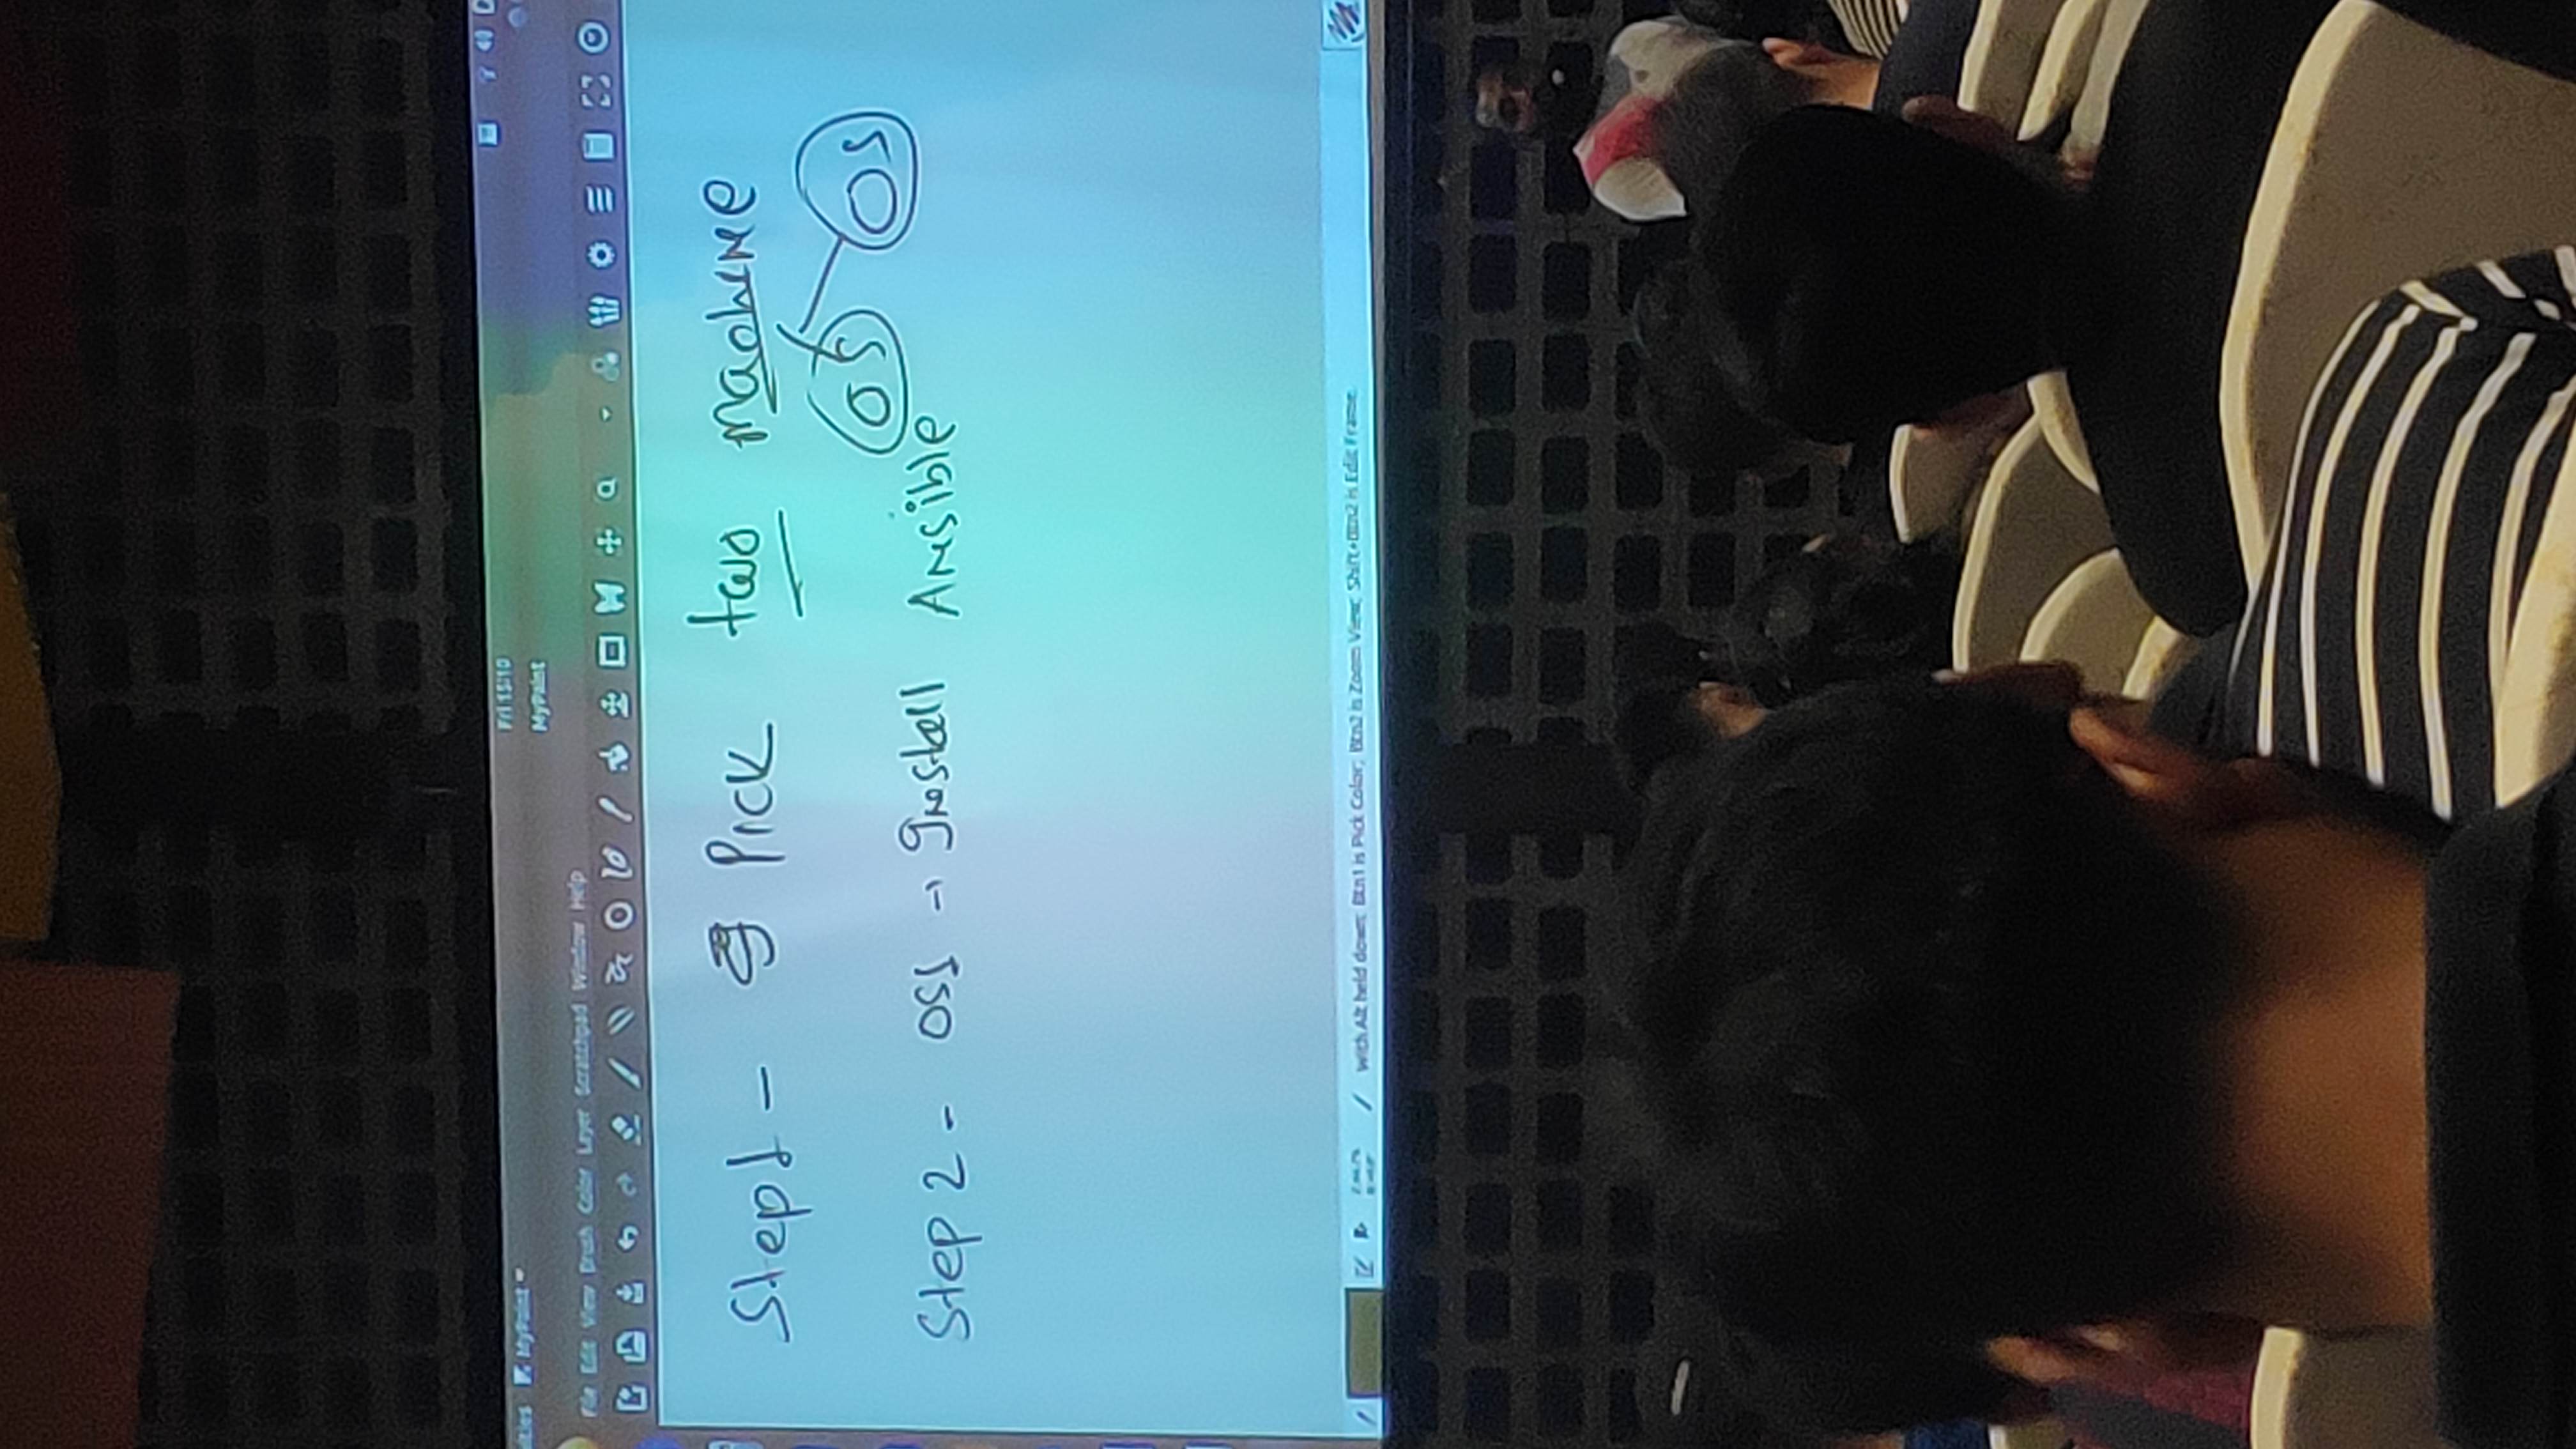 Fri 15:10
MyPaint
MyPaint
File Edit View Brush Color Layer Scratchpad Window Help
Step1 - Pick two machine
OS OS
Step 2 - OS1 → Install Ansible
With Alt held down: Btn1 is Pick Color; Btn2 is Zoom View; Shift+Btn2 is Edit Frame